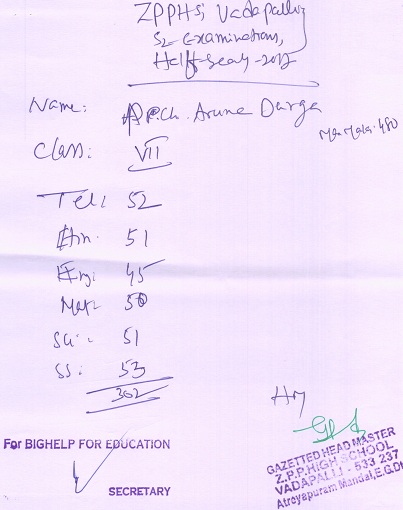 ZPPHS, Vadapally
S2 Examinations,
Half-yearly-2017
Name: P.Ch. Aruna Durga
Max Marks: 480
Class: VII
Tel: 52
Hin. 51
Eng: 45
Mat- 50
Sci- 51
SS: 53
302
HM
For BIGHELP FOR EDUCATION
SECRETARY
GAZETTED HEAD MASTER
Z.P.P.HIGH SCHOOL
VADAPALLI - 533 237
Atreyapuram Mandal, E.G.Dt